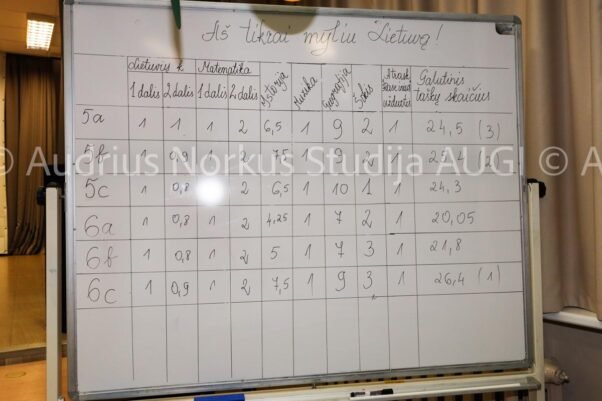 Aš tikrai myliu Lietuvą!
Lietuvių k Matematika
1 dalis 2 dalis 1 dalis 2 dalis Istorija Muzika Geografija Šokis Atrask Galutinis taškų skaičius
5a 1 1 1 2 6,5 1 9 2 1 24,5 (3)
© Audrius Norkus Studija AUG ©
5b 1 0,9 1 2 7,5 1 9 1
5c 1 0,8 1 2 6,5 1 10 1 1 24,3
6a 1 0,8 1 2 4,25 1 7 2 1 20,05
6b 1 0,8 1 2 5 1 7 3 1 21,8
6c 1 0,9 1 2 7,5 1 9 3 1 26,4 (1)